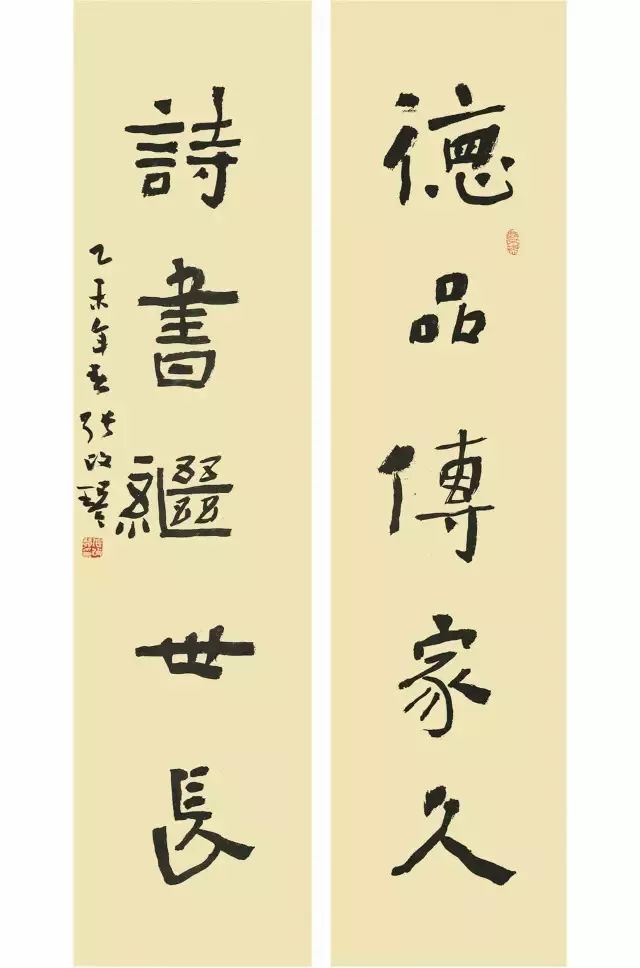 德品傳家久
詩書繼世長
乙未年春 张改琴